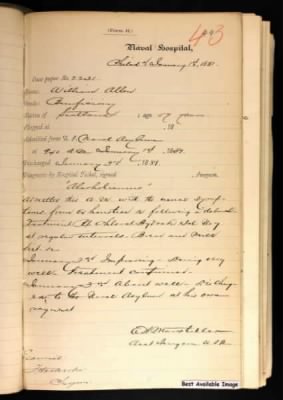 (Form H.)
443
Naval Hospital,
Philad. January 1st, 1881.
Case paper No.
Name: William Allen
Native of Scotland : age 57 years
Shipped at , 18
Admitted from U.S. Naval Asylum
January 1st 1881.
Discharged January 3d 1881.
Diagnosis by Hospital Ticket, signed , Surgeon.
"Alcoholismus"
Admitted this A.M. with the usual symp-
toms following a debauch
Treatment Chloral Hydrate
at regular intervals. Beef and Milk
diet
January 2nd Improving. Doing very
well. Treatment continued.
January 3rd About well. Discharg-
ed to the Naval Asylum at his own
request
Asst Surgeon U.S.N.
Surgeon
Best Available Image